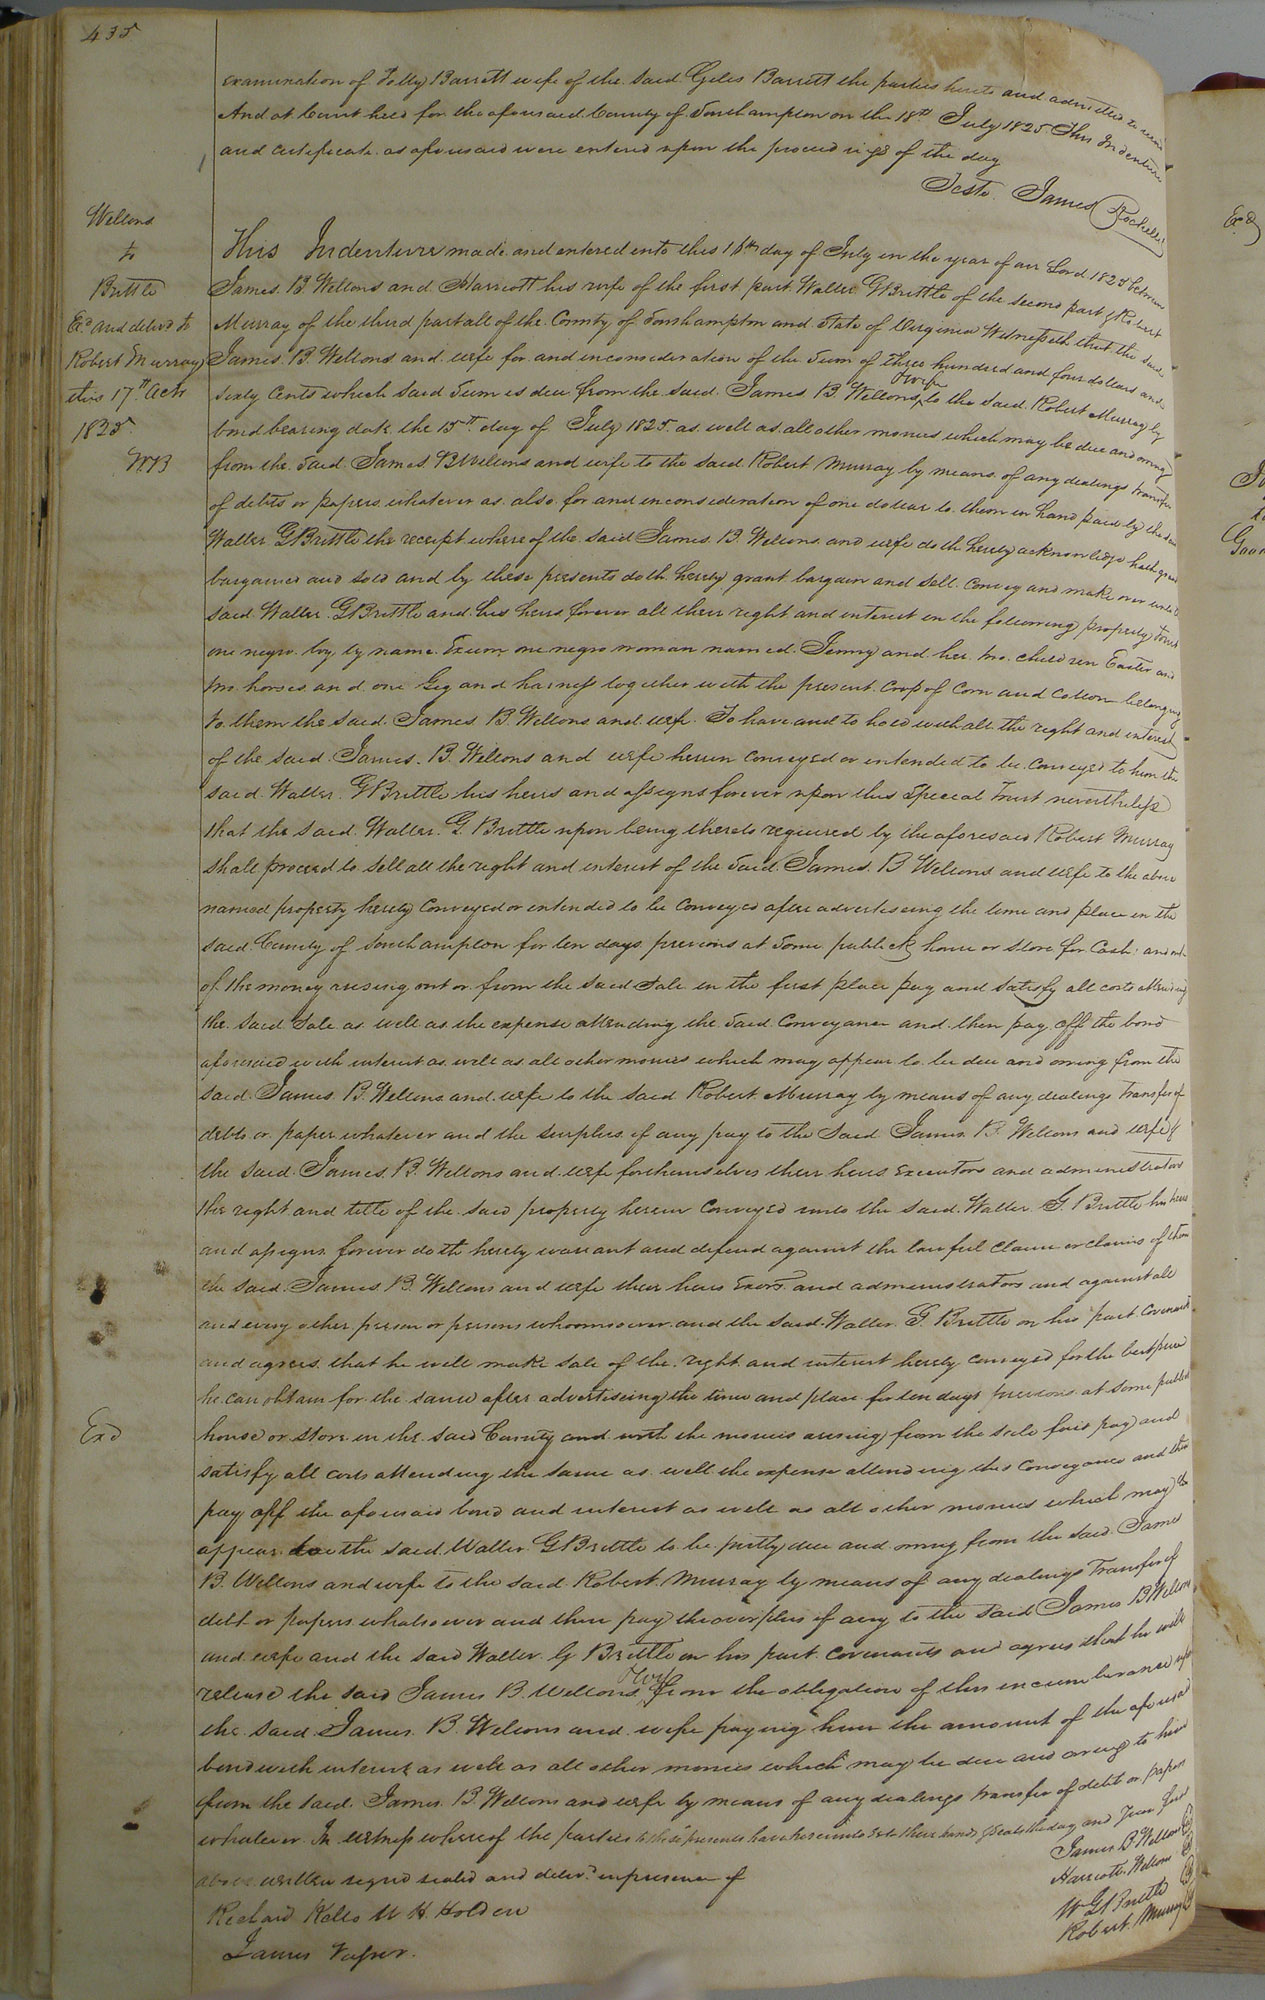 435
examination of Polly Barrett wife of the said Giles Barrett the parties hereto and admitted to record
And at Court held for the aforesaid County of Southampton on the 18th July 1825 This Indenture
and certificate as aforesaid were entered upon the proceedings of the day
Teste James Rochelle
Wellons
to
Brittle
Exd and delivd to
Robert Murray
this 17th Octr
1825
This Indenture made and entered into this 16th day of July in the year of our Lord 1825 between
James B. Wellons and Harriott his wife of the first part Walter G Brittle of the second part & Robert
Murray of the third part all of the County of Southampton and State of Virginia Witnesseth that the said
James B. Wellons and wife for and in consideration of the Sum of three hundred and four dollars and
sixty Cents which said Sum is due from the said James B. Wellons & wife to the said Robert Murray by
bond bearing date the 15th day of July 1825 as well as all other monies which may be due and owing
from the said James B Wellons and wife to the said Robert Murray by means of any dealings transfer
of debts or papers whatever as also for and in consideration of one dollar to them in hand paid by the said
Walter G Brittle the receipt whereof the said James B. Wellons and wife doth hereby acknowledge hath
bargained and sold and by these presents doth hereby grant bargain and sell convey and make over unto
said Walter G Brittle and his heirs forever all their right and interest in the following property
one negro boy by name Exum one negro woman named Jenny and her two children Easter and
two horses and one Gig and harness together with the present Crop of Corn and Cotton belonging
to them the said James B. Wellons and wife To have and to hold with all the right and interest
of the said James B. Wellons and wife herein Conveyed or intended to be Conveyed to him the
said Walter G Brittle his heirs and assigns forever upon this Special Trust nevertheless
that the said Walter G. Brittle upon being thereto required by the aforesaid Robert Murray
shall proceed to sell all the right and interest of the said James B Wellons and wife to the above
named property hereby Conveyed or intended to be Conveyed after advertiseing the time and place in the
said County of Southampton for ten days previous at Some publick house or store for Cash and out
of the money ariseing out or from the said Sale in the first place pay and satisfy all costs attending
the said Sale as well as the expense attending the said Conveyance and then pay off the bond
aforesaid with interest as well as all other monies which may appear to be due and owing from the
said James B. Wellons and wife to the said Robert Murray by means of any dealings Transfer of
debts or paper whatever and the surplus if any pay to the said James B. Wellons and wife &
the said James B. Wellons and wife for themselves their heirs Executors and administrators
the right and title of the said property herein Conveyed unto the said Walter G. Brittle his heirs
and assigns forever doth hereby warrant and defend against the lawful Claim or claims of them
the said James B. Wellons and wife their heirs Exors and administrators and against all
and every other person or persons whoomsoever and the said Walter G. Brittle on his part Covenants
and agrees that he will make sale of the right and interest hereby conveyed for the best price
he can obtain for the same after advertiseing the time and place for ten days previous at some publick
Exd
house or store in the said County and with the monies ariseing from the sale first pay and
satisfy all costs attending the same as well the expense attending this Conveyance and then
pay off the aforesaid bond and interest as well as all other monies which may
appear to the said Walter G Brittle to be justly due and owing from the said James
B. Wellons and wife to the said Robert Murray by means of any dealings Transfer of
debt or papers whatsoever and then pay the overplus if any to the said James B Wellons
and wife and the said Walter G Brittle on his part Covenants and agrees that he will
release the said James B. Wellons & wife from the obligation of this incumberance upon
the said James B. Wellons and wife paying him the amount of the aforesaid
bond with interest as well as all other monies which may be due and owing to him
from the said James B. Wellons and wife by means of any dealings transfer of debt or papers
whatever In witness whereof the parties to these presents have hereunto set their hands & seals the day and Year first
above written signed sealed and delivd in presence of
James B Wellons
Harriott Wellons
W G Brittle
Robert Murray
Richard Kello W H. Holden
James Vasser.